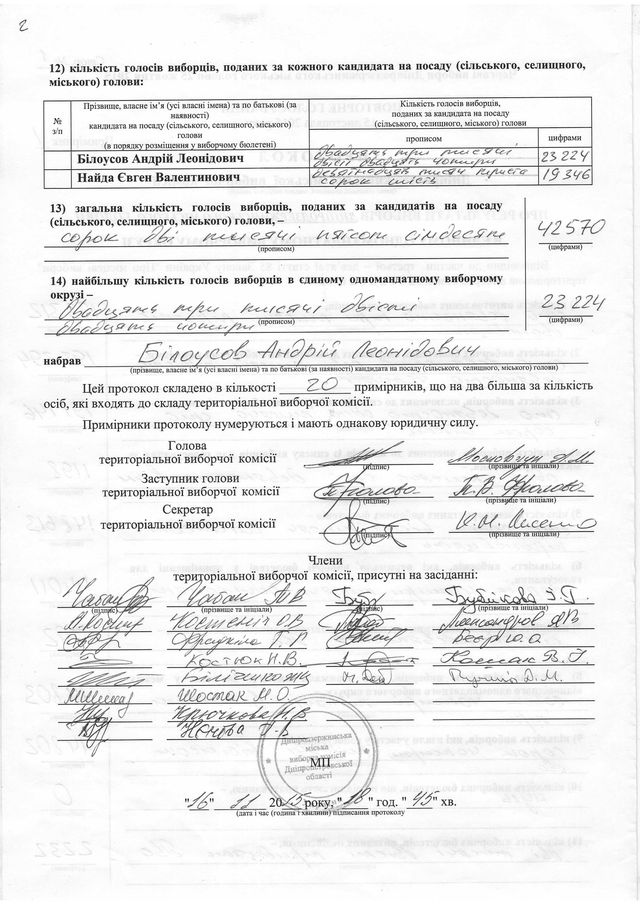 2
12) кількість голосів виборців, поданих за кожного кандидата на посаду (сільського, селищного,
міського) голови:
№
з/п
Прізвище, власне ім’я (усі власні імена) та по батькові (за
наявності)
кандидата на посаду (сільського, селищного, міського)
голови
(в порядку розміщення у виборчому бюлетені)
Кількість голосів виборців,
поданих за кандидата на посаду
(сільського, селищного, міського) голови
прописом
цифрами
Білоусов Андрій Леонідович
двадцять три тисячі
двісті двадцять чотири
23 224
Найда Євген Валентинович
дев'ятнадцять тисяч триста
сорок шість
19 346
13) загальна кількість голосів виборців, поданих за кандидатів на посаду
(сільського, селищного, міського) голови, –
сорок дві тисячі п'ятсот сімдесят
(прописом)
42570
(цифрами)
14) найбільшу кількість голосів виборців в єдиному одномандатному виборчому
окрузі –
двадцять три тисячі двісті
двадцять чотири
(прописом)
23 224
(цифрами)
набрав Білоусов Андрій Леонідович
(прізвище, власне ім’я (усі власні імена) та по батькові (за наявності) кандидата на посаду (сільського, селищного, міського) голови)
Цей протокол складено в кількості 20 примірників, що на два більша за кількість
осіб, які входять до складу територіальної виборчої комісії.
Примірники протоколу нумеруються і мають однакову юридичну силу.
Голова
територіальної виборчої комісії
(підпис)
(прізвище та ініціали)
Заступник голови
територіальної виборчої комісії
(підпис)
Т. В. Фролова
(прізвище та ініціали)
Секретар
територіальної виборчої комісії
(підпис)
(прізвище та ініціали)
Члени
територіальної виборчої комісії, присутні на засіданні:
Чабан Т В
(підпис)
(прізвище та ініціали)
(підпис)
(прізвище та ініціали)
Костюк Н.В.
Шостак М.О.
Крючкова
Дніпродзержинська
міська
виборча комісія
Дніпропетровської
області
МП
"16" 11 2015 року, "18" год. "45" хв.
(дата і час (година і хвилини) підписання протоколу